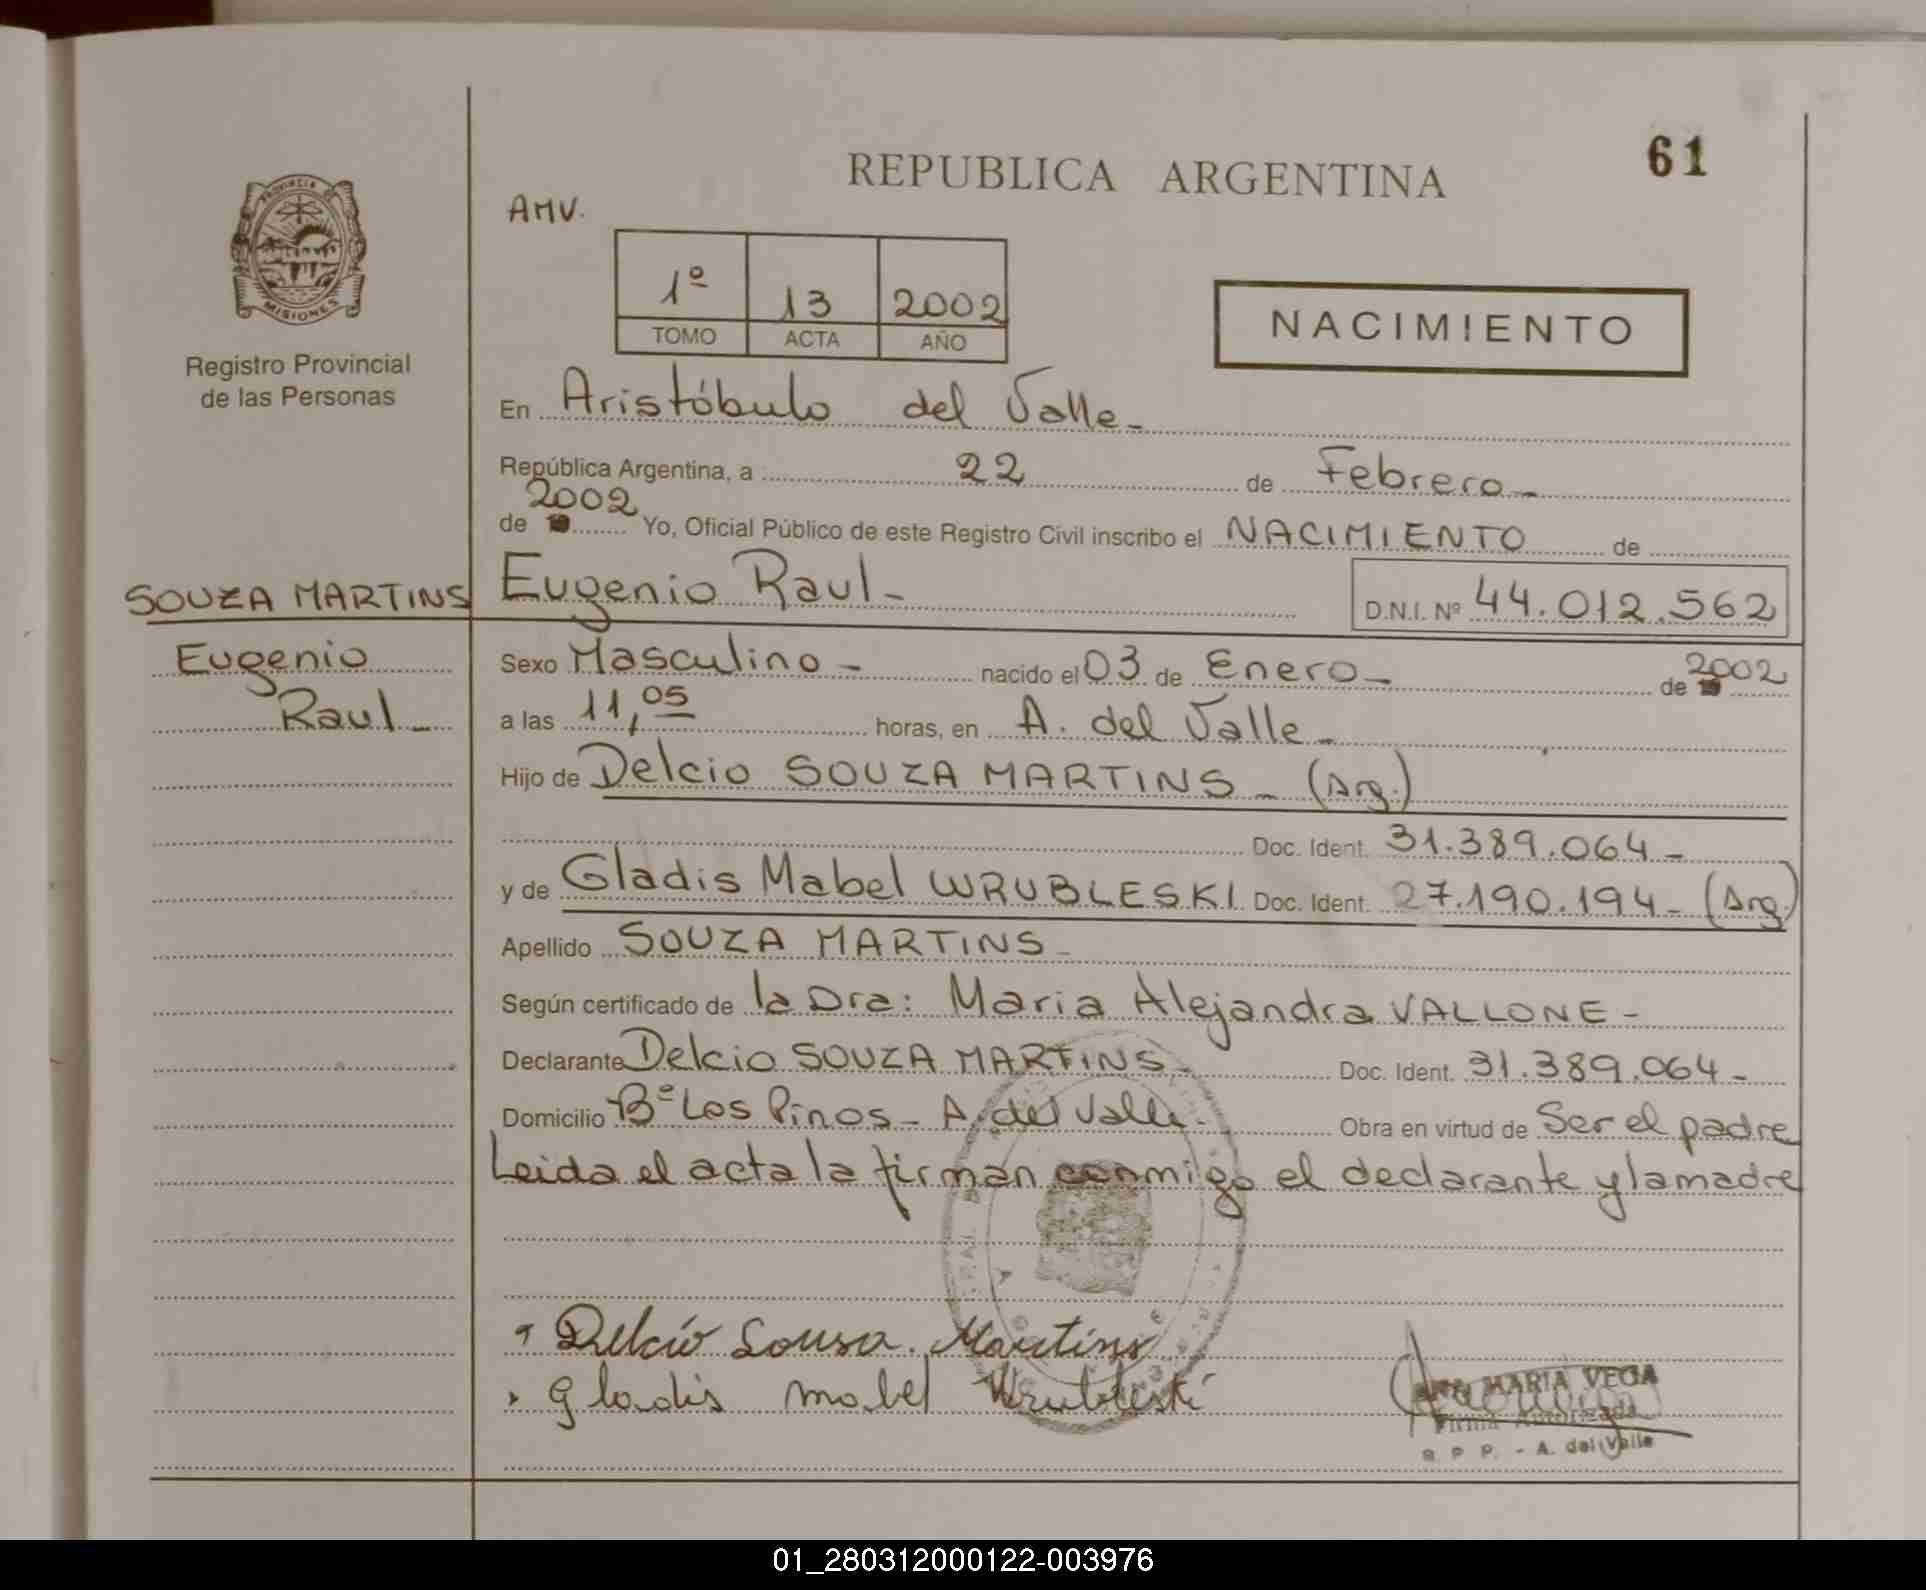 61
REPUBLICA ARGENTINA
AMV.
PROVINCIA DE
MISIONES
Registro Provincial
de las Personas
1º 13 2002
TOMO ACTA AÑO
NACIMIENTO
En Aristóbulo del Valle_
República Argentina, a 22 de Febrero_
de 2002 Yo, Oficial Público de este Registro Civil inscribo el NACIMIENTO de
SOUZA MARTINS
Eugenio
Raul_
Eugenio Raul_ D.N.I. Nº 44.012.562
Sexo Masculino_ nacido el 03 de Enero_ de 2002
a las 11,05 horas, en A. del Valle_
Hijo de Delcio SOUZA MARTINS_ (Arg.)
Doc. Ident. 31.389.064_
y de Gladis Mabel WRUBLESKI Doc. Ident. 27.190.194_ (Arg.)
Apellido SOUZA MARTINS_
Según certificado de la Dra: Maria Alejandra VALLONE_
Declarante Delcio SOUZA MARTINS_ Doc. Ident. 31.389.064_
Domicilio Bº Los Pinos_ A. del Valle. Obra en virtud de Ser el padre
Leida el acta la firman conmigo el declarante y la madre
Delcio Sousa. Martins
Gladis mabel Wrubleski
ANA MARIA VEGA
Firma Autorizada
R. P. P. - A. del Valle
01_280312000122-003976